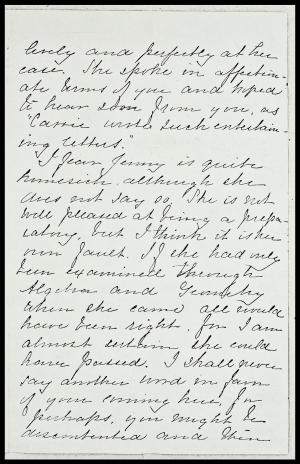 lively and perfectly at her
ease. She spoke in affection-
ate terms of you and hoped
to hear soon from you, as
"Carrie wrote such entertain-
ing letters."
I fear Jenny is quite
homesick although she
does not say so. She is not
well pleased at being a prepa-
ratory, but I think it is her
own fault. If she had only
been examined through
Algebra and Geometry
when she came all would
have been right, for I am
almost certain she could
have passed. I shall never
say another word in favor
of your coming here, for
perhaps, you might be
discontented and then